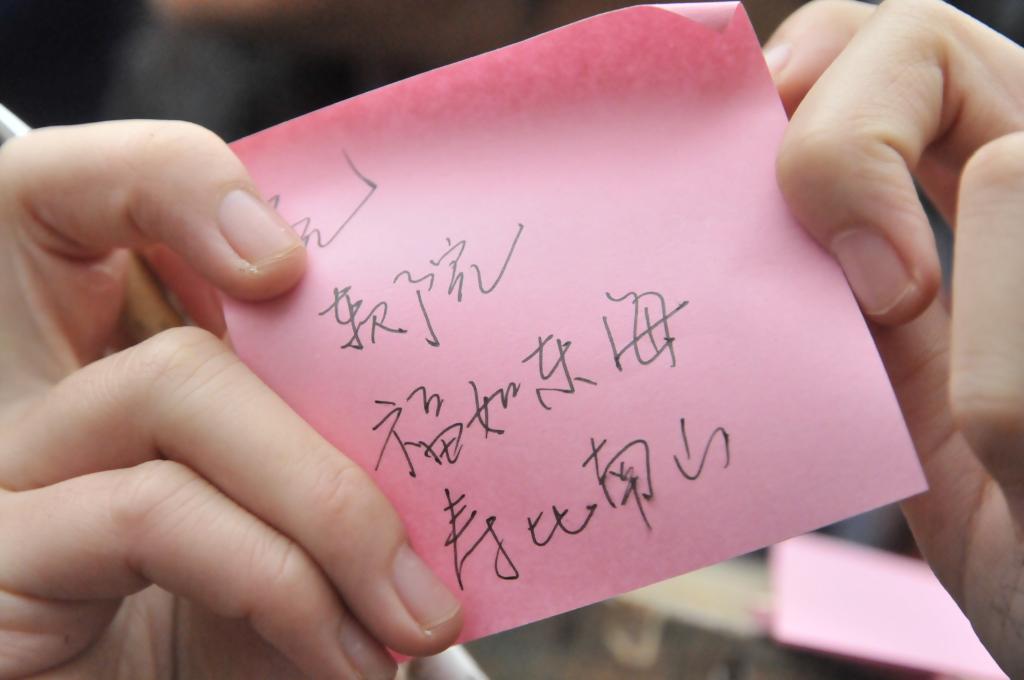 软院
福如东海
寿比南山